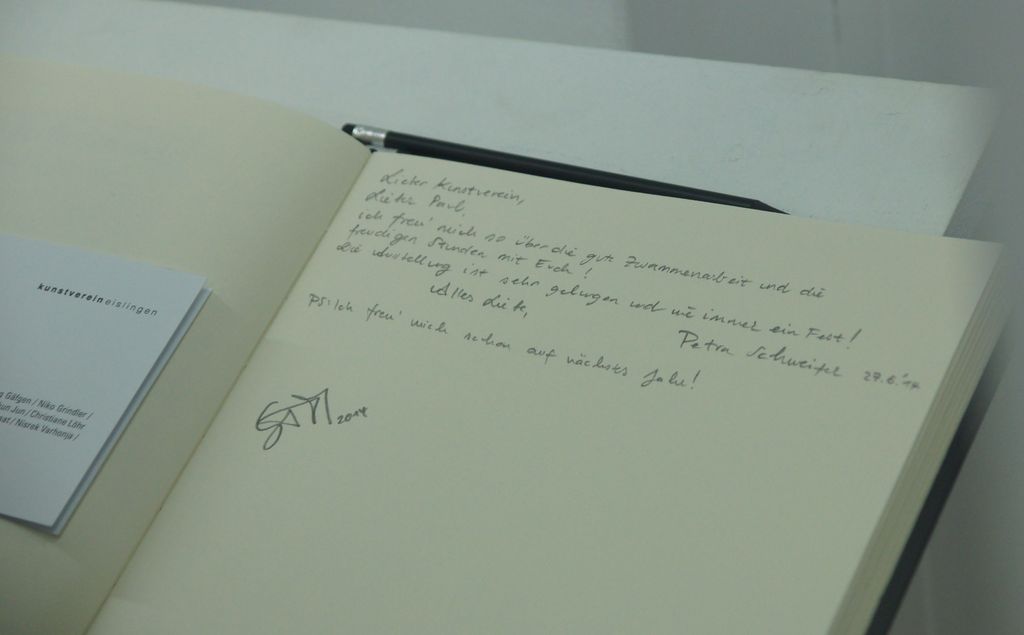 kunstvereineislingen
Gälgen / Niko Grindler /
Jun / Christiane Löhr
/ Nisrek Varhonja /
Lieber Kunstverein,
Lieber Paul,
ich freu' mich so über die gute Zusammenarbeit und die
freudigen Stunden mit Euch!
Die Ausstellung ist sehr gelungen und wie immer ein Fest!
Alles Liebe,
Petra 27.6.'14
PS: Ich freu' mich schon auf nächstes Jahr!
2014